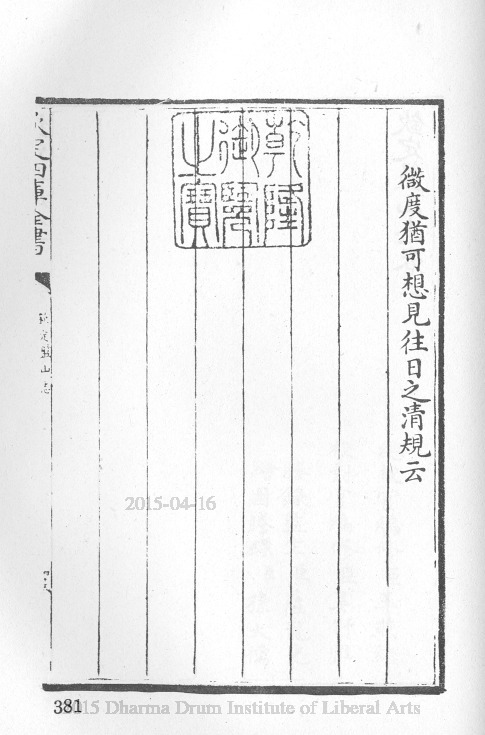 微度猶可想見往日之清規云
乾隆
御覽
之寶
欽定四庫全書
欽定盤山志
2015-04-16
381
2015 Dharma Drum Institute of Liberal Arts